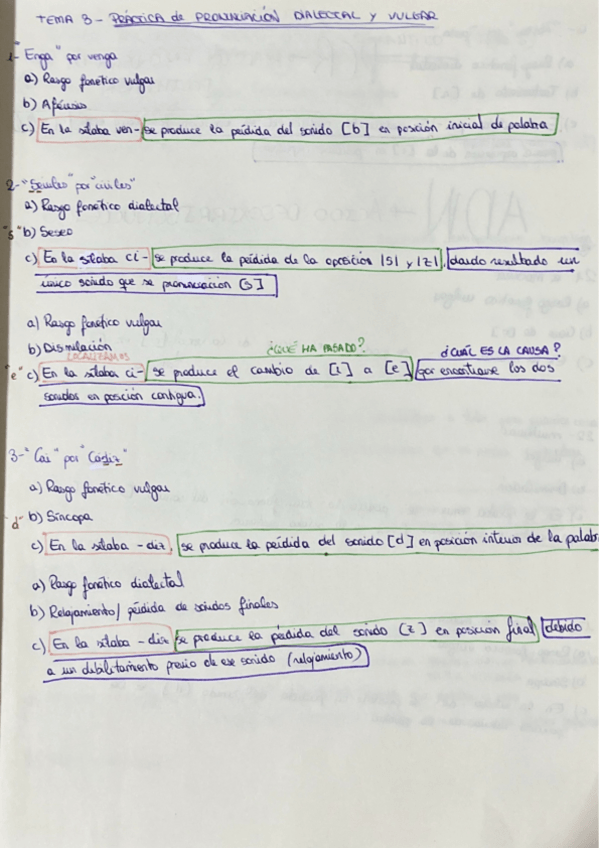 TEMA 8 - PRÁCTICA de PRONUNCIACIÓN DIALECTAL Y VULGAR
1- "Enga" por venga
a) Rasgo fonético vulgar
b) Aféresis
c) En la sílaba ven- se produce la pérdida del sonido [b] en posición inicial de palabra.
2- "Seviles" por "civiles"
a) Rasgo fonético dialectal
"s" b) Seseo
c) En la sílaba ci- se produce la pérdida de la oposición |S| y |Z|, dando resultado un
único sonido que se pronunciación [s]
a) Rasgo fonético vulgar
b) Disimilación
LOCALIZAMOS ¿QUÉ HA PASADO? ¿CUÁL ES LA CAUSA?
"e" c) En la sílaba ci- se produce el cambio de [i] a [e] por encontrarse los dos
sonidos en posición contigua.
3- "Cai" por "Cádiz"
a) Rasgo fonético vulgar
-d- b) Síncopa
c) En la sílaba -diz, se produce la pérdida del sonido [d] en posición interior de la palab
a) Rasgo fonético dialectal
b) Relajamiento/ pérdida de sonidos finales
c) En la sílaba -diz se produce la pérdida del sonido [z] en posición final debido
a un debilitamiento previo de ese sonido (relajamiento)